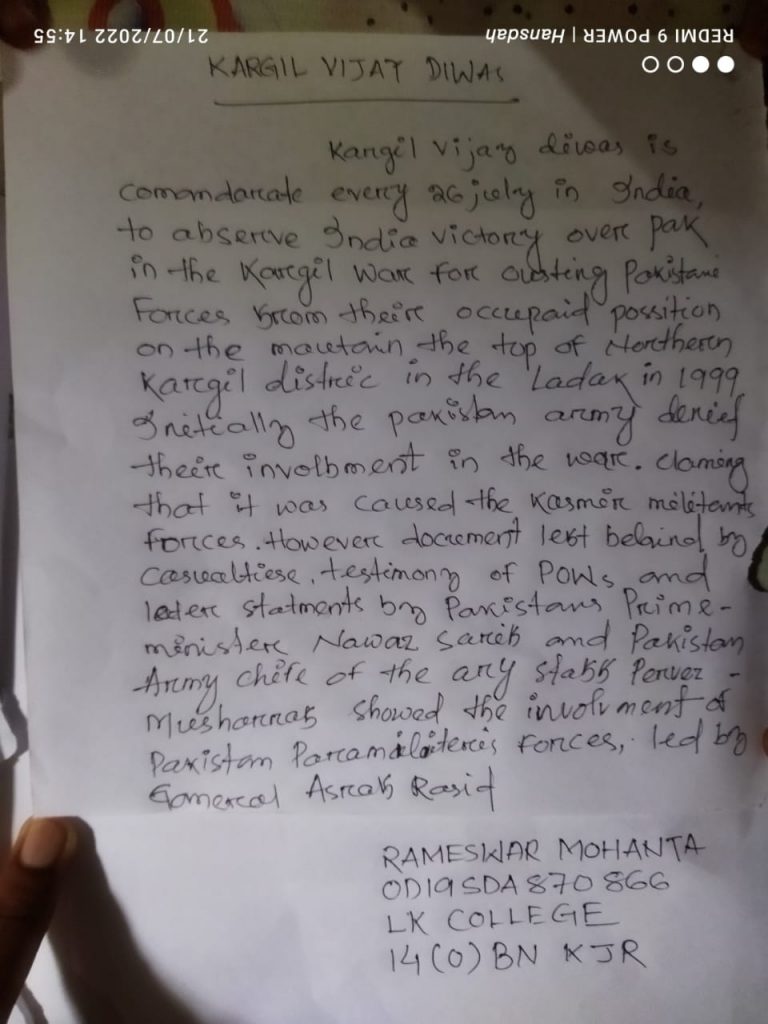 REDMI 9 POWER | Hansdah
21/07/2022 14:55
KARGIL VIJAY DIWAS
Kargil Vijay diwas is
comandarate every 26 july in India,
to abserve India victory over pak
in the Kargil War for ousting Pakistani
Forces from their occupaid possition
on the mautain the top of Northern
Kargil distric in the Ladak in 1999
Initically the pakistan army denied
their involbment in the war. claming
that it was caused the Kasmir militants
forces. However document left behind by
Casualtiese, testimony of POWs and
leter statments by Pakistans Prime-
minister Nawaz sarif and Pakistan
Army chife of the ary staff Pervez -
Musharraf showed the involvment of
Pakistan Paramiliteris forces, led by
Gomeral Asraf Rasid
RAMESWAR MOHANTA
OD19SDA870866
LK COLLEGE
14(O) BN KJR